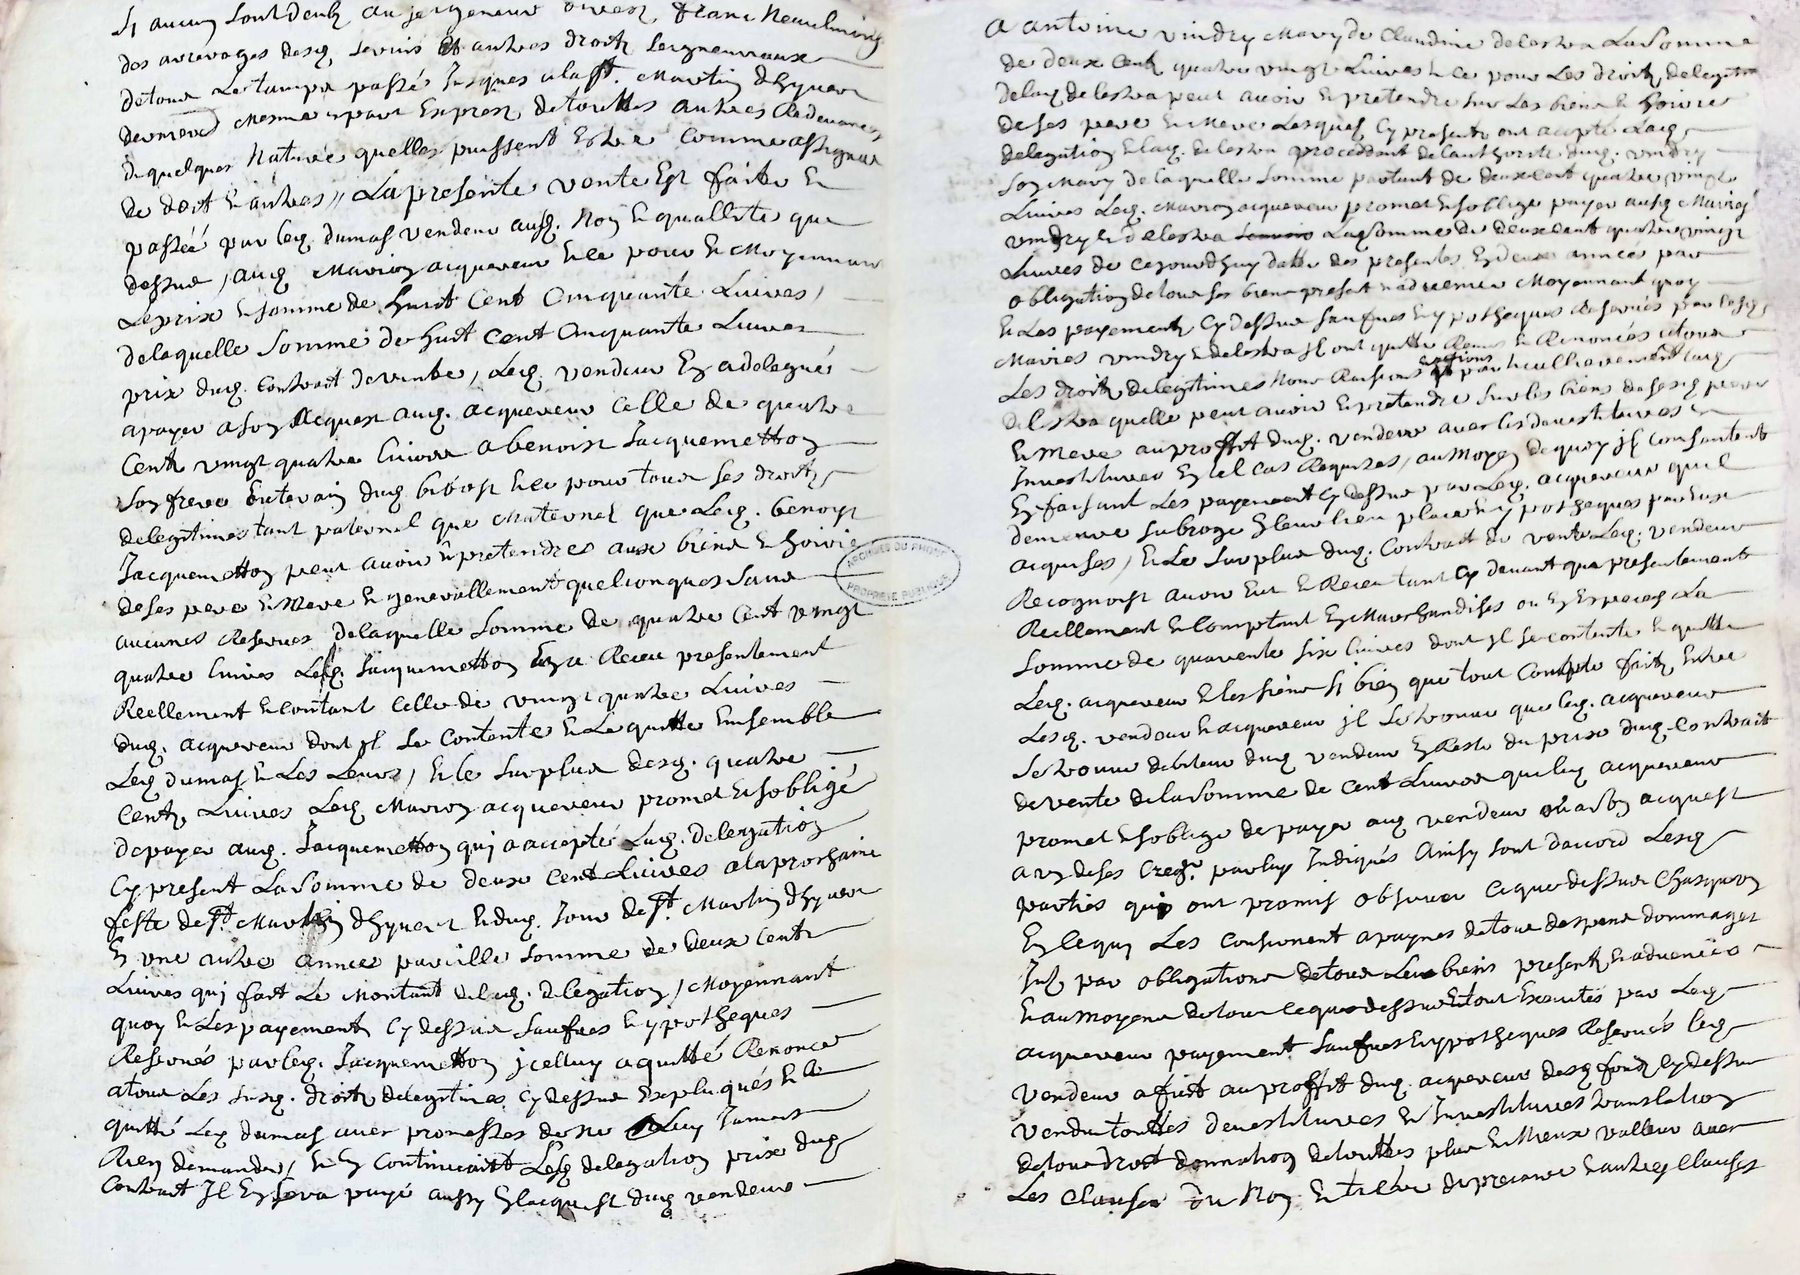 Sy aucun sont deubz au seigneur direct, franc neaulmoing
des arrerages desq. servis et autres droitz seigneuriaux
de tout le tampz passé Jusques a la st. Martin dhyver
dernier mesme par Exprez de touttes autres Redevances
de quelques Nature quelles puissent Estre comme assigner
de doit et autres // La presente vente Est faitte et
passéé par leq. dumas vendeur ausq. Nom et quallite que
dessus, auq. Marion acquereur et ce pour et Moyennant
Le prix et somme de huit Cent Cinquante Livres,
de laquelle somme de huit cent Cinquante Livres
prix duq. contract de vente, Leq. vendeur En a delegués
a payer a son acquest auq. acquereur Celle de quatre
Centz vingt quatre livres a benoist Jacquemetton
son frere uterain duq. benoist et ce pour tous ses droitz
de legitimes tant paternel que Maternel que Leq. benoist
Jacquemetton peut avoir et pretendres aux biens et hoirie
de ses pere et Mere et generallement quelconques sans
aucunes Reserves de laquelle somme de quatre Cent vingt
quatre livres Leq. Jacquemetton En a Receu presentement
Reellement et contant Celle de vingt quatre Livres
duq. acquereur dont Jl se contente et Le quitte Ensemble
Leq dumas et Les Leurs, et le surplus desq. quatre
Centz Livres Leq Marion acquereur promet et soblige
de payer auq. Jacquemetton qui a accepté Laq. delegation
Cy present La somme de deux cent Livres a la prochaine
feste de st. Martin dhyvert et duq. Jour de st. Martin dhyver
En une autre année pareille somme de deux Centz
Livres qui fait Le Montant de laq. delegation, Moyennant
quoy et Les payementz Cy dessus saufues et ypotheques
Reservés par leq. Jacquemetton jcelluy a quitté Renonce
a tous Les susq. droitz de legitimes Cy dessus Expliqués et a
quitté Leq dumas avec promesses de ne Luy Jamais
Rien demander, et En Continuant Lesq delegation prix duq
Contract Jl En sera payé aussy En lacquest duq vendeur
A antoine vindry Mary de Claudine delestra La somme
de deux Centz quatre vingt Livres et ce pour Les droitz de legitime
de laq. delestra peut avoir et pretendre sur Les biens et hoirie
de ses pere et Mere Lesquels Cy presents ont accepté Laq.
delegation et laq. delestra procedant de lauthorité duq. vindry
son Mary de laquelle somme partant de deux cent quatre vingt
Livres Leq. Marion acquereur promet et soblige payer ausq Mariés
vindry et delestra La somme de deux cent quatre vingt
Livres de ce jourdhuy datte des presentes En deux années par
obligation de tous ses biens present et advenir Moyennant quoy
et Les payementz Cy dessus saufues et ypotheques Reservés par lesq.
Mariés vindry et delestra Jl ont quitté Remis et Renoncés a tous
Les droitz de legitimes Noms Raisons actions particullierement laq.
delestra quelle peut avoir et pretendre sur les biens de sesq pere
et Mere au proffit duq. vendeur avec les devestitures et
Investitures En tel cas Requises, au Moyen de quoy jl consentent
En faisant Les payement Cy dessus par Leq. acquereur quil
demeure subrogé En leur lieu place et ypotheques par Eux
acquises, et Le surplus duq. Contract de vente Leq. vendeur
Recognoist avoir Eut et Receu tant Cy devant que presentement
Reellement et comptant En Marchandises ou En Especes La
somme de quarente six livres dont Jl se contente et quitte
Leq. acquereur et les siens si bien que tout Compte faitz Entre
Lesq. vendeur et acquereur jl se trouve que leq. acquereur
se trouve debiteur duq vendeur En Reste du prix duq. Contrait
de vente de la somme de Cent Livres que leq acquereur
promet et soblige de payer auq vendeur ou a son acquest
a un de ses Creanr. par luy Indiqués Ainsy sont d'accord Lesq
parties qui ont promis observer ce que dessus Chascun
En ce quy Les consernent a paynes de tous despens dommages
Intz. par obligations de tous Leurs biens presentz et advenir
et au moyens de tout ce que dessus Et tout Executés par Leq
acquereur payement saufues et ypotheques Reservés leq
vendeur a fait au proffit duq. acquereur desq fondz Cy dessus
vendu touttes devestitures et Investitures translation
de tous droit donnation de touttes plus et Mieux valleur avec
Les clauses du Nom Constitué de precaire et autres Clauses
ARCHIVES DU RHÔNE
PROPRIÉTÉ PUBLIQUE